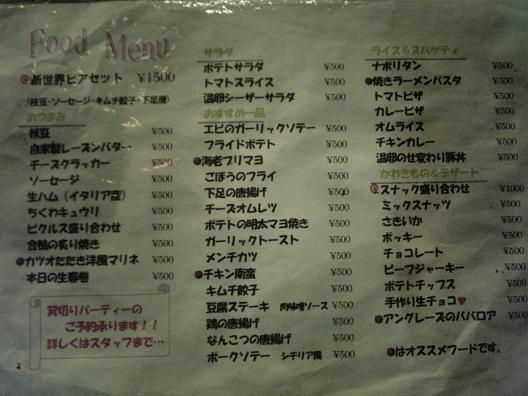 Food Menu
●新世界ビアセット ¥1500
(枝豆・ソーセージ・キムチ餃子・下足唐)
おつまみ
枝豆 ¥500
自家製レーズンバター ¥500
チーズクラッカー ¥500
ソーセージ ¥500
生ハム(イタリア産) ¥500
ちくわキュウリ ¥500
ピクルス盛り合わせ ¥500
合鴨の炙り焼き ¥500
●カツオたたき洋風マリネ ¥500
本日の生春巻 ¥500
貸切りパーティーの
ご予約承ります!!
詳しくはスタッフまで…
サラダ
ポテトサラダ ¥500
トマトスライス ¥500
温卵シーザーサラダ ¥500
おすすめ一品
エビのガーリックソテー ¥500
フライドポテト ¥500
●海老プリマヨ ¥500
ごぼうのフライ ¥500
下足の唐揚げ ¥500
チーズオムレツ ¥500
ポテトの明太マヨ焼き ¥500
ガーリックトースト ¥500
メンチカツ ¥500
●チキン南蛮 ¥500
キムチ餃子 ¥500
豆腐ステーキ 肉味噌ソース ¥500
鶏の唐揚げ ¥500
なんこつの唐揚げ ¥500
ポークソテー シチリア風 ¥500
ライス&スパゲティ
ナポリタン ¥500
●焼きラーメンパスタ ¥500
トマトピザ ¥500
カレーピザ ¥500
オムライス ¥500
チキンカレー ¥500
温卵のせ変わり豚丼 ¥500
かわきもの&デザート
●スナック盛り合わせ ¥1000
ミックスナッツ ¥500
さきいか ¥500
ポッキー ¥500
チョコレート ¥500
ビーフジャーキー ¥500
ポテトチップス ¥500
手作り生チョコ♥ ¥500
●アングレーズのババロア ¥500
●はオススメフードです。